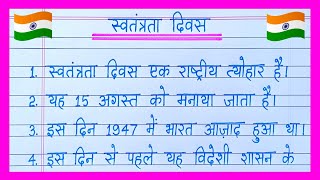 स्वतंत्रता दिवस
1. स्वतंत्रता दिवस एक राष्ट्रीय त्योहार है।
2. यह 15 अगस्त को मनाया जाता है।
3. इस दिन 1947 में भारत आज़ाद हुआ था।
4. इस दिन से पहले यह विदेशी शासन के